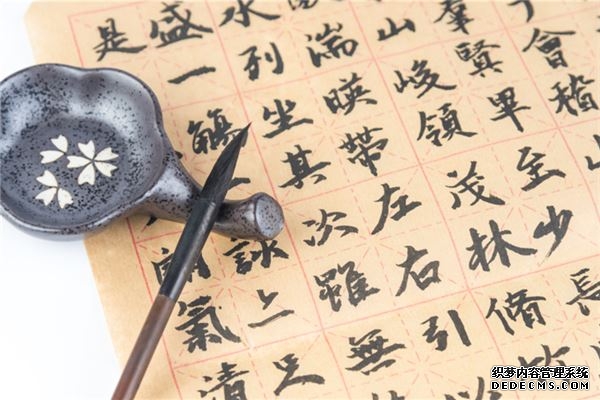 會稽
羣賢畢至少長
山峻領茂林脩
湍暎帶左右引
水列坐其次雖無
盛一觴詠足
是氣清
织梦内容管理系统
DEDECMS.COM